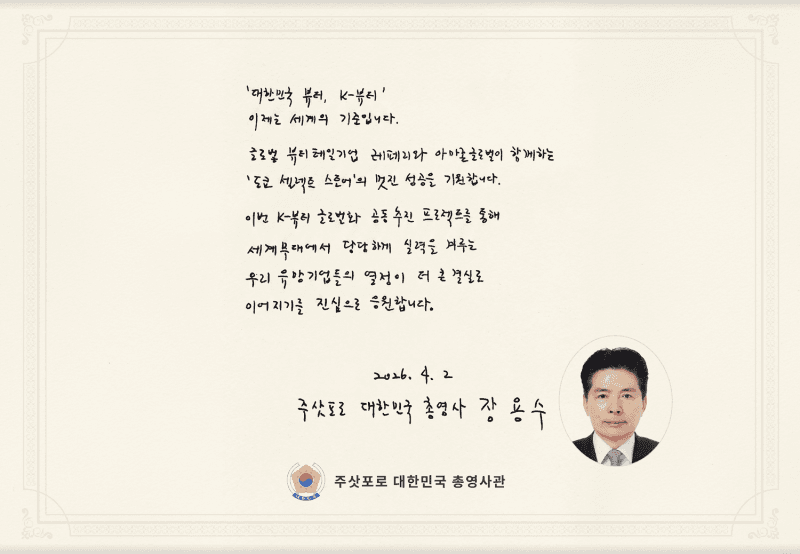 '대한민국 뷰티, K-뷰티'
이제는 세계의 기준입니다.
글로벌 뷰티테일기업 레페리와 아마존글로벌이 함께하는
'도쿄 셀렉트 스토어'의 멋진 성공을 기원합니다.
이번 K-뷰티 글로벌화 공동추진 프로젝트를 통해
세계무대에서 당당하게 실력을 겨루는
우리 유망기업들의 열정이 더 큰 결실로
이어지기를 진심으로 응원합니다.
2026. 4. 2
주삿포로 대한민국 총영사 장용수
주삿포로 대한민국 총영사관